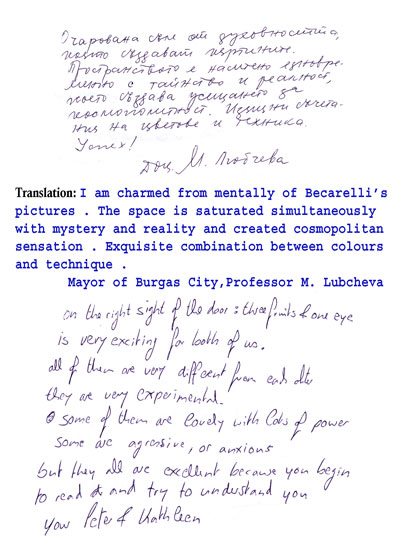 Очарована съм от духовността,
която създават картините.
Пространството е наситено едновре-
менно с тайнство и реалност,
което създава усещането за
космополитност. Изящни съчета-
ния на цветове и техника.
Успех!
Доц. М. Любчева
Translation: I am charmed from mentally of Becarelli's
pictures . The space is saturated simultaneously
with mystery and reality and created cosmopolitan
sensation . Exquisite combination between colours
and technique .
Mayor of Burgas City,Professor M. Lubcheva
on the right sight of the door : three fruits & one eye
is very exciting for both of us.
all of them are very different from each other
they are very experimental.
some of them are lovely with lots of power
some are agressive, or anxious
but they all are excellent because you begin
to read and try to understand you
your Peter & Kathleen